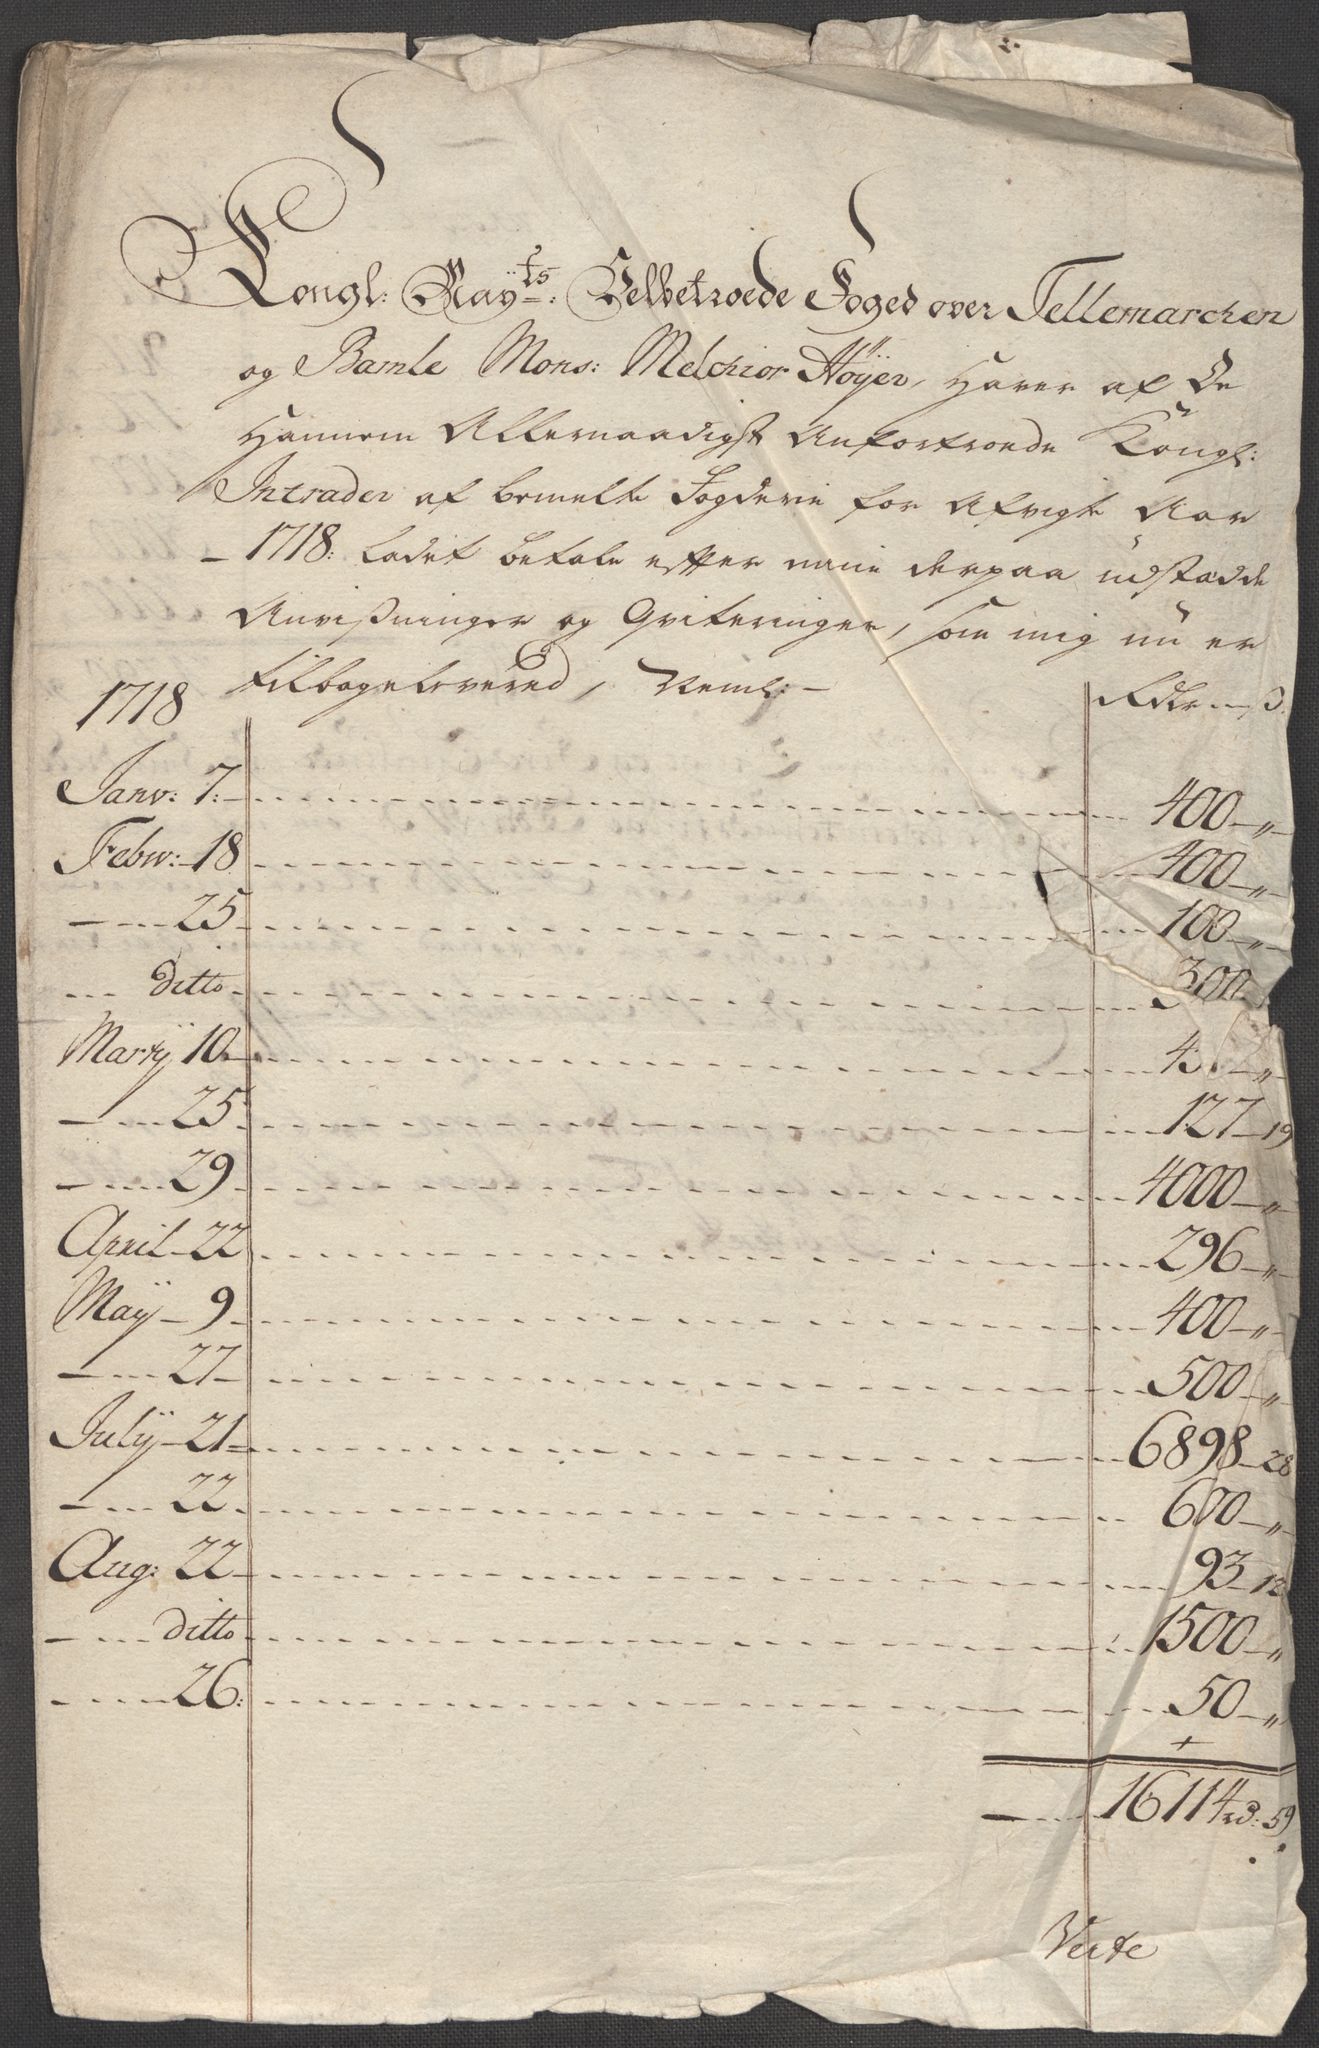 Kongl: May.ts: Velbetroede Foged over Tellemarchen
og Bamle Mons: Melchior Höÿer, Haver af De
Hannem Allernaadigst Anfortroede Kongl:
Intrader af bemelte Fogderie for Afvigte Aar
1718: ladet betale efter mine derpaa udstædde
Anvißninger og Qviteringer, som mig nu er
tilbagelevered, Neml:
1718 Rdlr ß.
Janv: 7: 400 - "
Febru: 18 400 - "
25 100 - "
ditto 300
Martÿ 10 4
25 127 - 19
29 4000 - "
April 22 296 - "
Maÿ 9 400 - "
27 500 - "
Julÿ 21 6898 - 28
22 600 - "
Aug: 22 93 - 12
ditto 1500 - "
26: 50 - "
16114 rd: 59
Verte